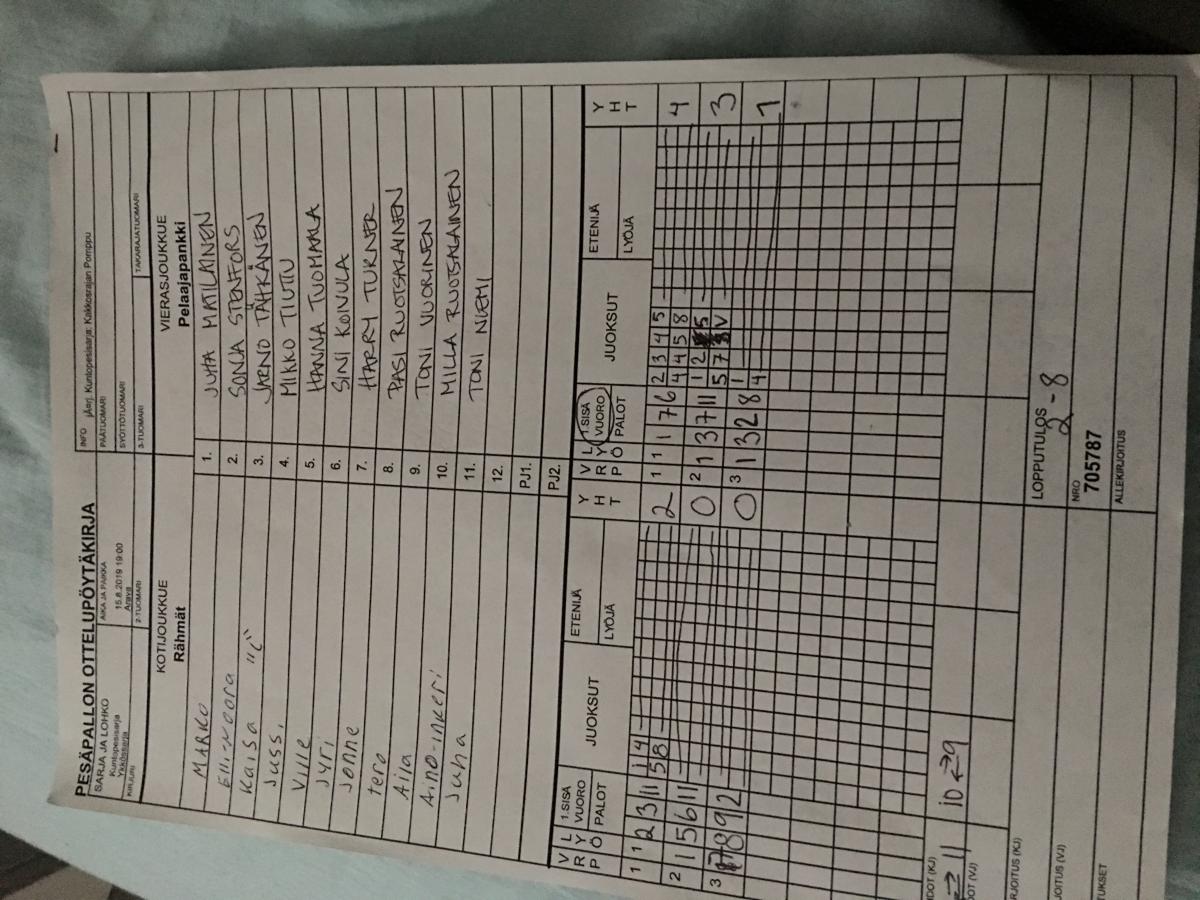 PESÄPALLON OTTELUPÖYTÄKIRJA
SARJA JA LOHKO
Kuntopesisarja
Ykkössarja
AIKA JA PAIKKA
15.8.2019 19:00
Arava
INFO
Kuntopesisarja: Kakkosrajan Pomppu
PÄÄTUOMARI
SYÖTTÖTUOMARI
KIRJURI
2-TUOMARI
3-TUOMARI
TAKARAJATUOMARI
KOTIJOUKKUE
Rähmät
VIERASJOUKKUE
Pelaajapankki
MARKO
1. JUHA MATILAINEN
Elli-Noora
2. SONJA STENFORS
Kaisa "C"
3. JARNO TÄHKÄNEN
Jussi
4. MIKKO TIUTU
Ville
5. HANNA TUOMAALA
Jyri
6. SINI KOIVULA
Jonne
7. HARRY TURNER
tero
8. PASI RUOTSALAINEN
Aila
9. TONI VUORINEN
Aino-inkeri
10. MILLA RUOTSALAINEN
Juha
11. TONI NIEMI
12.
PJ1.
PJ2.
V R P L Y Ö 1.SISÄ VUORO PALOT JUOKSUT ETENIJÄ LYÖJÄ Y H T
V R P L Y Ö 1.SISÄ VUORO PALOT JUOKSUT ETENIJÄ LYÖJÄ Y H T
1 1 2 3 11 1 4 2
5 8
1 1 1 7 6 2 3 4 5 4
4 4 5 8
2 1 5 6 11 0
2 1 3 7 11 1 2 5 3
5 7 V
3 8 9 2 0
3 1 3 2 8 1 1
4
→ 11 10 → 9
LOPPUTULOS
2 - 8
NRO
705787
ALLEKIRJOITUS